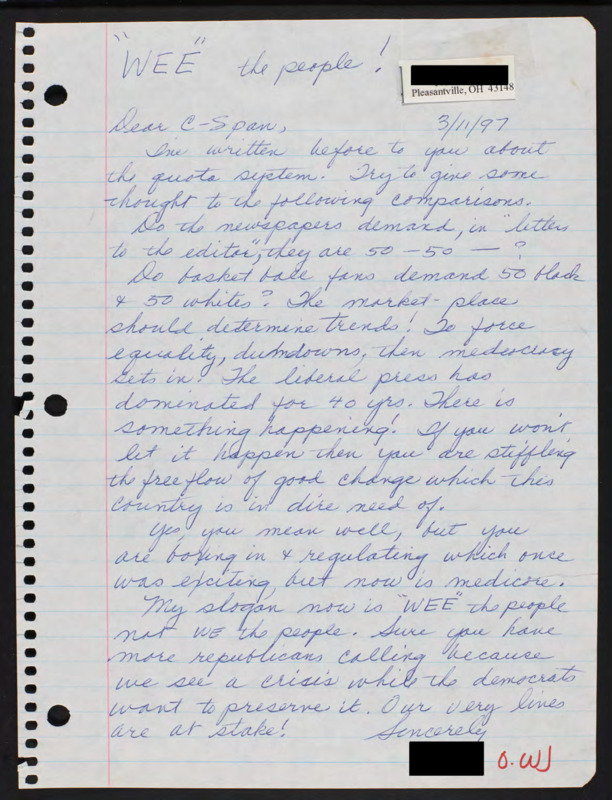 "WEE" the people!
Pleasantville, OH 43148
Dear C-Span, 3/11/97
I've written before to you about
the quota system. Try to give some
thought to the following comparisons.
Do the newspapers demand, in "letters
to the editor", they are 50-50 — ?
Do basket ball fans demand 50 black
& 50 whites? The market-place
should determine trends! To force
equality, dumdowns, then mediocracy
sets in! The liberal press has
dominated for 40 yrs. There is
something happening! If you won't
let it happen then you are stiffling
the free flow of good change which this
country is in dire need of.
Yes, you mean well, but you
are boxing in & regulating which once
was exciting but now is medicore.
My slogan now is "WEE" the people
not WE the people. Sure you have
more republicans calling because
we see a crisis while the democrats
want to preserve it. Our very lives
are at stake! Sincerely
O.W